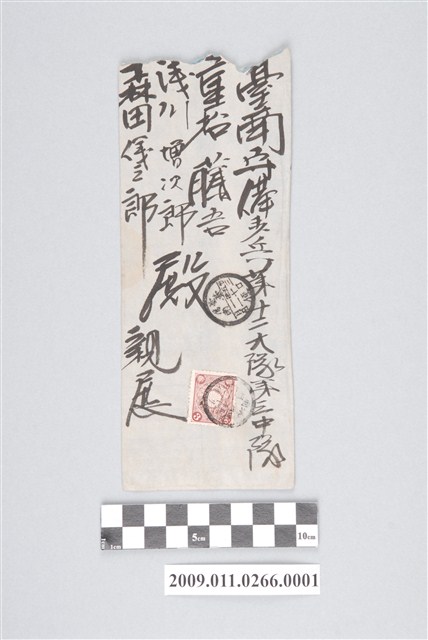 臺南守備歩兵第十二大隊第三中隊
重松藤吾
浅川増次郎
森田儀三郎
殿
親展
5cm
10cm
1cm
2009.011.0266.0001